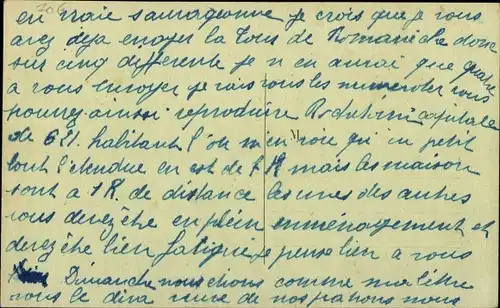 en vraie sauvageonne je crois que je vous
avez déjà envoyer la Tour de Romanèche donc
sur cinq differente je n en aurai que quatre
a vous envoyer je vais vous les numeroter vous
pourrez ainsi reproduire capitale
de 611. habitant l'on m en voie qu un petit
bout l'etendue en est de 7 K mais les maison
sont a 1 K. de distance les unes des autres
vous devez être en plein enménagement et
devez être bien fatigue je pense bien a vous
Dimanche nous étions comme ma lettre
vous le dira de nos patrons nous